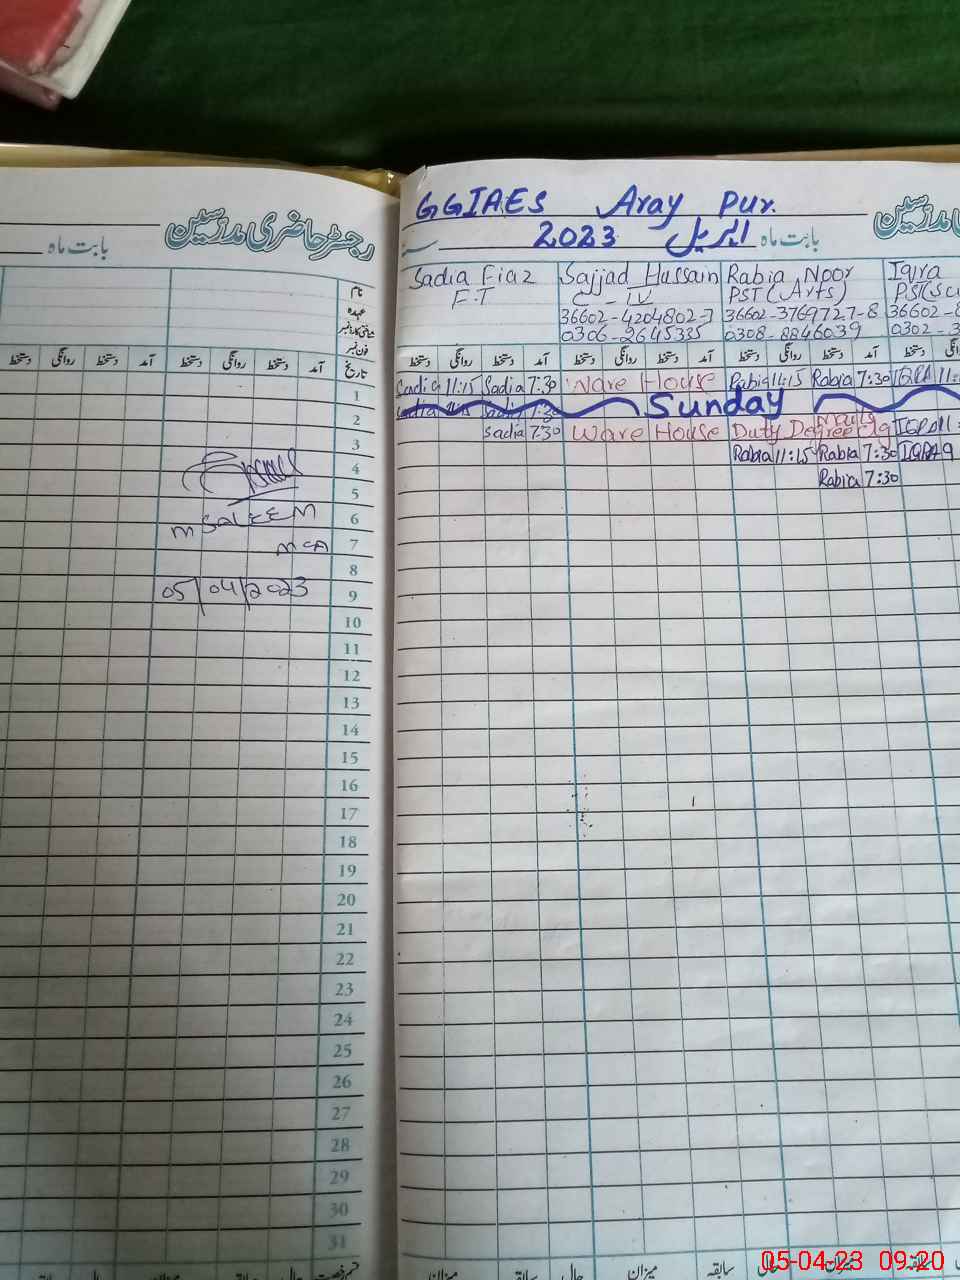 رجسٹر حاضری مدرسین
بابت ماہ
نام
عہدہ
شناختی کارڈ نمبر
فون نمبر
دستخط روانگی دستخط آمد دستخط روانگی دستخط آمد تاریخ
1
2
3
4
5
6
7
8
9
10
11
12
13
14
15
16
17
18
19
20
21
22
23
24
25
26
27
28
29
30
31
M SALEEM
MCA
05/04/2023
GGIAES Aray Pur.
بابت ماہ اپریل 2023
Sadia Fiaz Sajjad Hussain Rabia Noor Iqra
F.T C-IV PST (Arts)
36602-4204802-7 36602-3769727-8 36602-
0306-2645335 0308-8846039 0302-3
دستخط روانگی دستخط آمد دستخط روانگی دستخط آمد دستخط روانگی دستخط آمد دستخط
Sadia 11:15 Sadia 7:30 Ware House Rabia 11:15 Rabia 7:30 IQRA 11:
Sadia 11:15 Sadia 7:30 Sunday
Sadia 7:30 Ware House Duty Degree
Rabia 11:15 Rabia 7:30 IQRA 9
Rabia 7:30
میزان سابقہ حال میزان سابقہ حال میزان
05-04-23 09:20